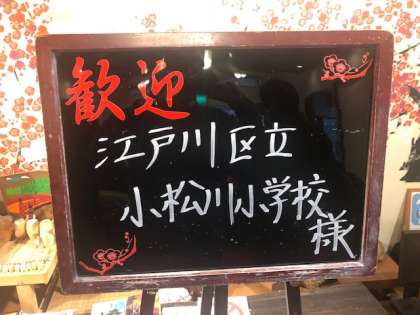 歓迎
江戸川区立
小松川小学校
様